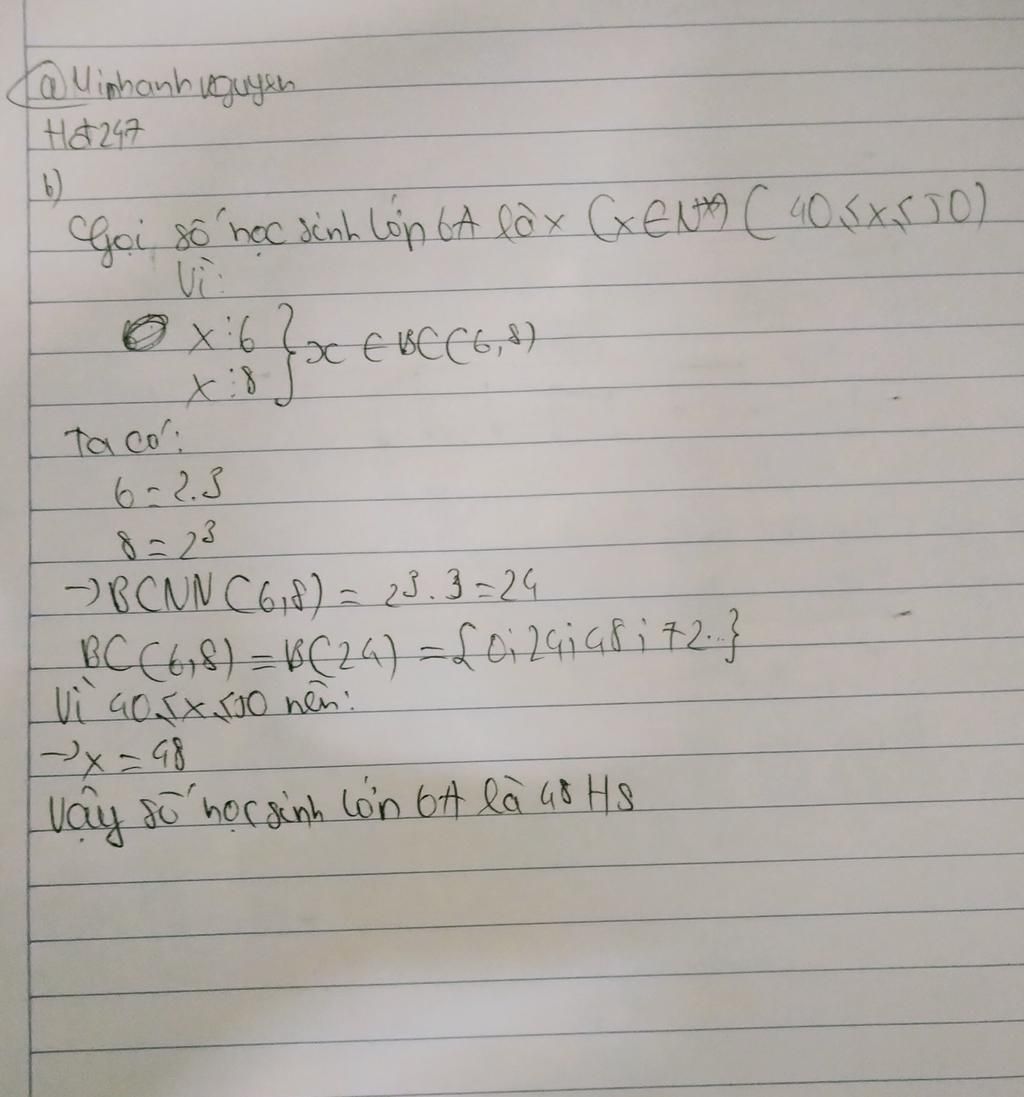 @Minhanhnguyen
Hot247
b)
Gọi số học sinh lớp 6A là x (x ∈ N*) (40 ≤ x ≤ 50)
Vì:
x ⋮ 6 } x ∈ BC(6,8)
x ⋮ 8
Ta có:
6 = 2.3
8 = 2³
→ BCNN(6,8) = 2³.3 = 24
BC(6,8) = B(24) = {0; 24; 48; 72...}
Vì 40 ≤ x ≤ 50 nên:
→ x = 48
Vậy số học sinh lớp 6A là 48 HS